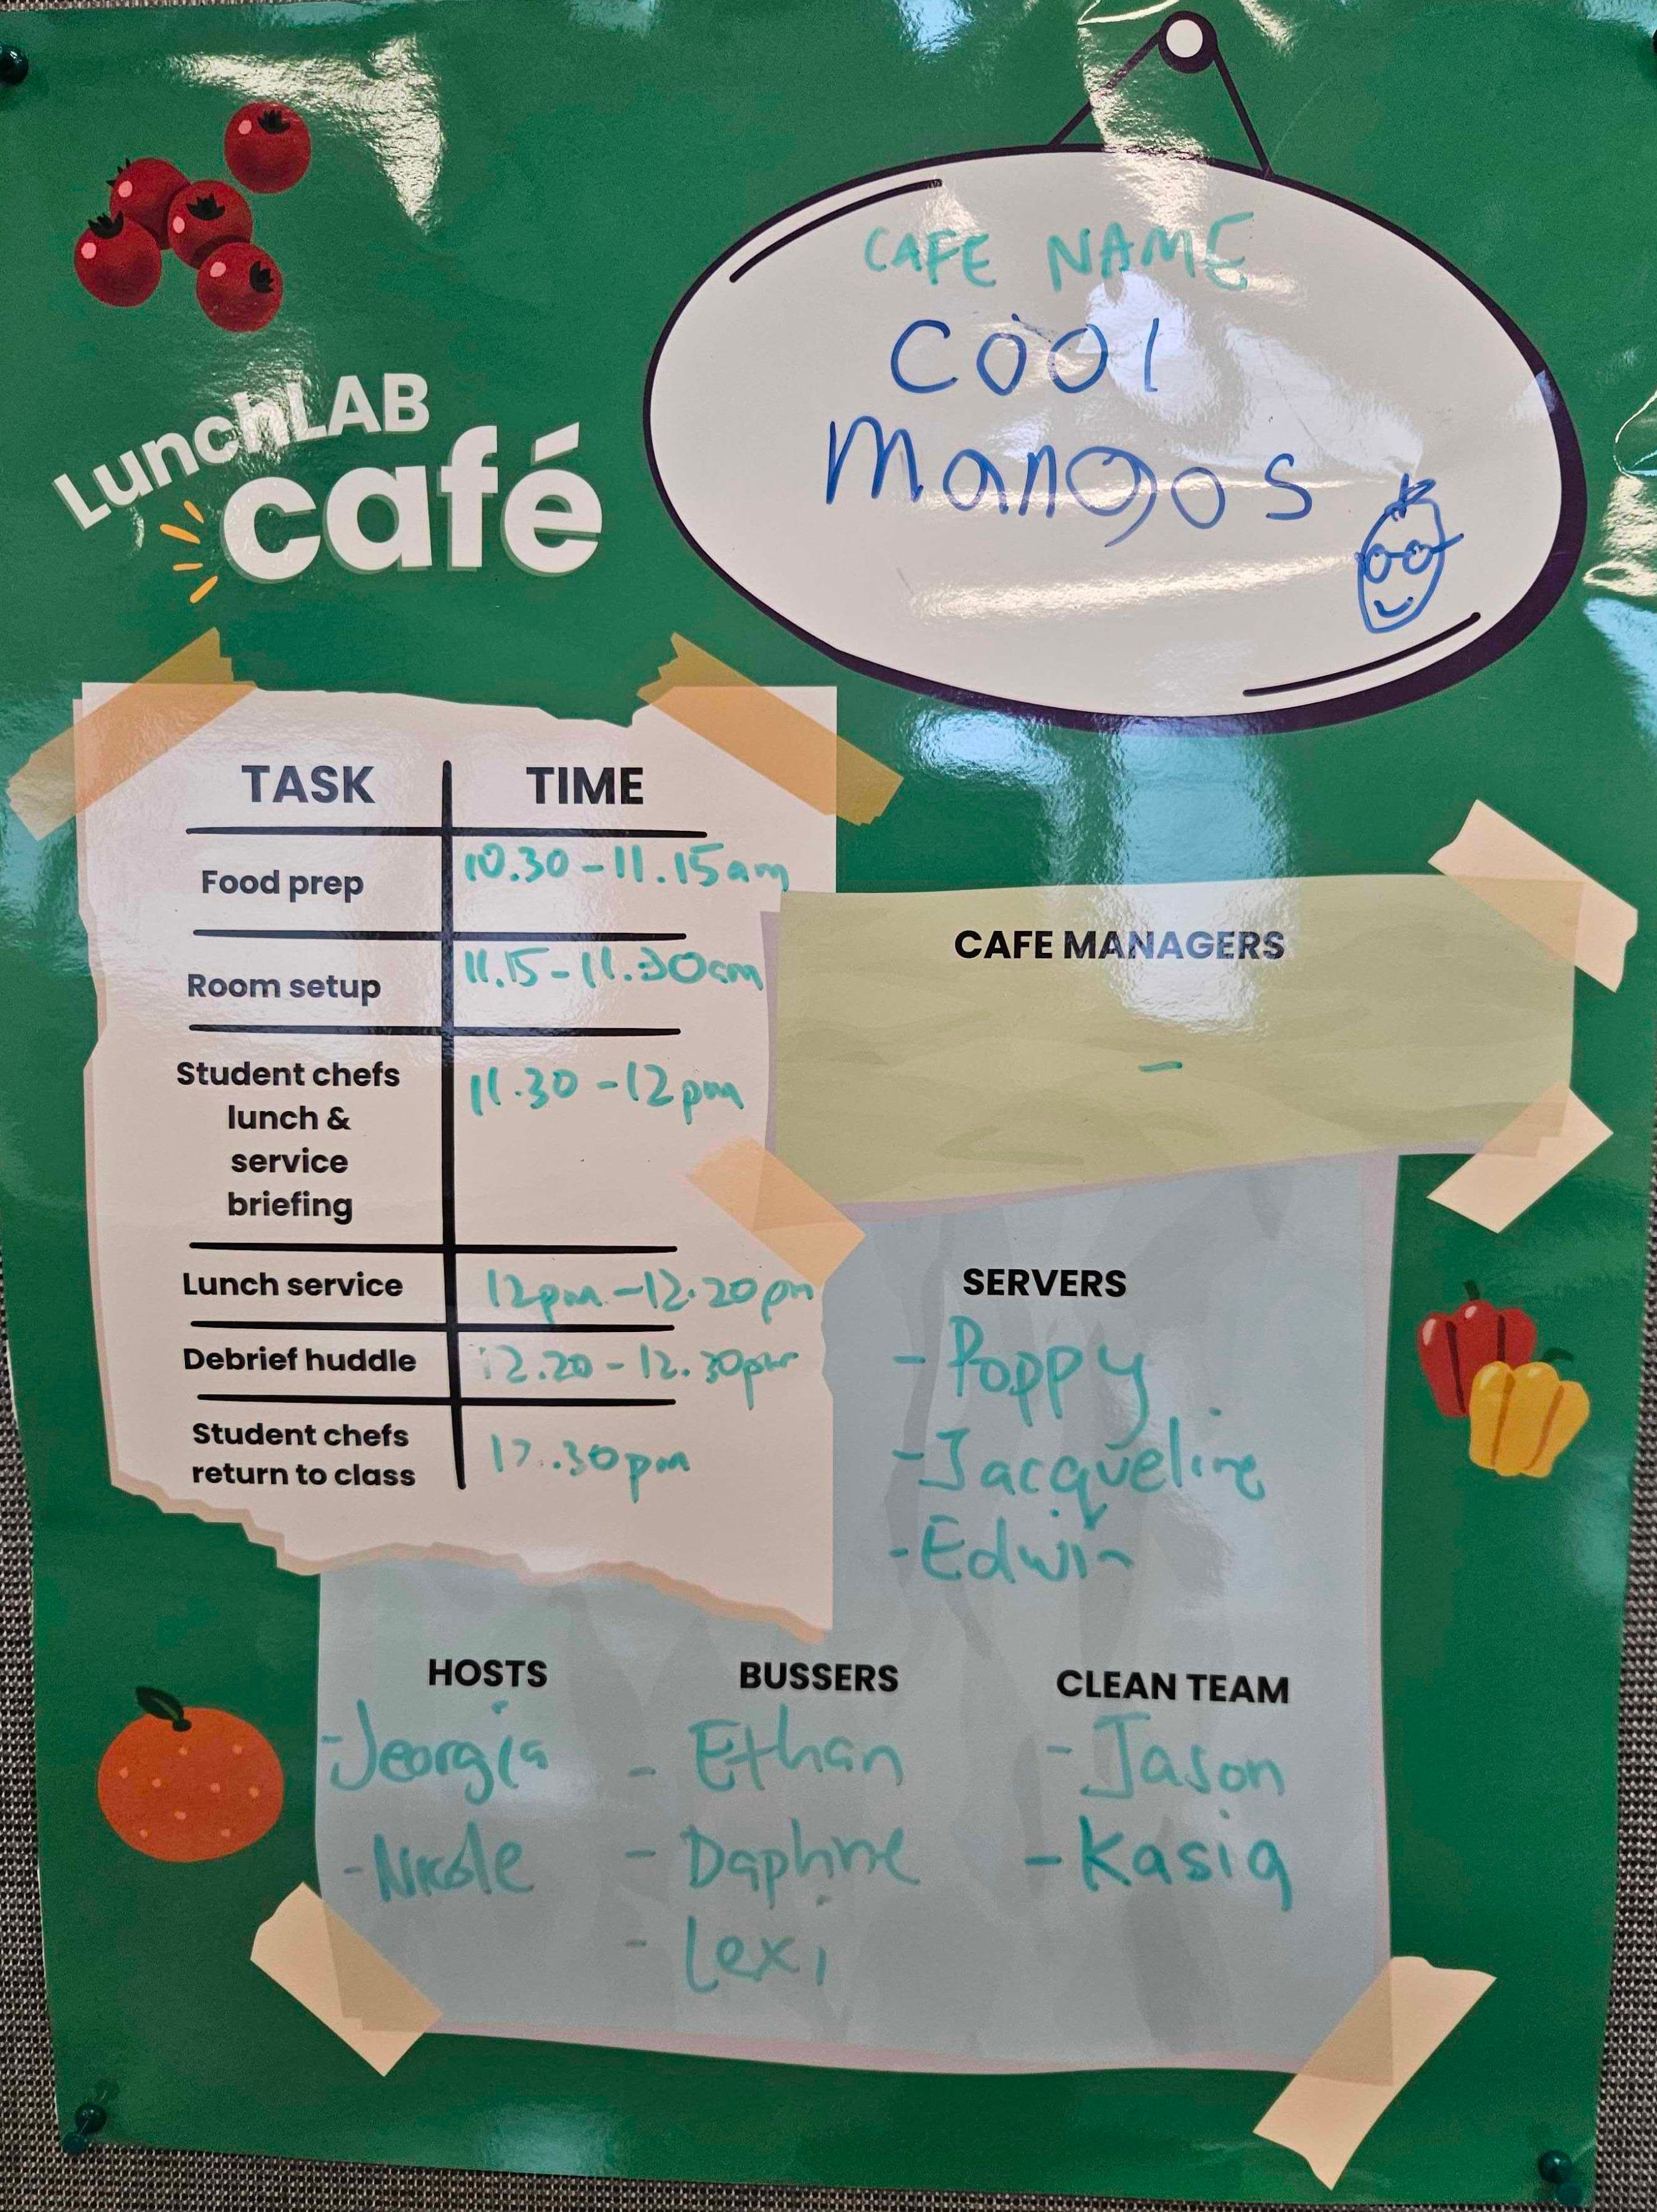 LunchLAB
café
CAFE NAME
Cool
Mangos
TASK TIME
Food prep 10.30 - 11.15am
Room setup 11.15 - 11.30am
Student chefs 11.30 - 12pm
lunch &
service
briefing
Lunch service 12pm - 12.20pm
Debrief huddle 12.20 - 12.30pm
Student chefs 12.30pm
return to class
CAFE MANAGERS
-
SERVERS
- Poppy
- Jacqueline
- Edwin
HOSTS
- Jeorgia
- Nicole
BUSSERS
- Ethan
- Daphine
- Lexi
CLEAN TEAM
- Jason